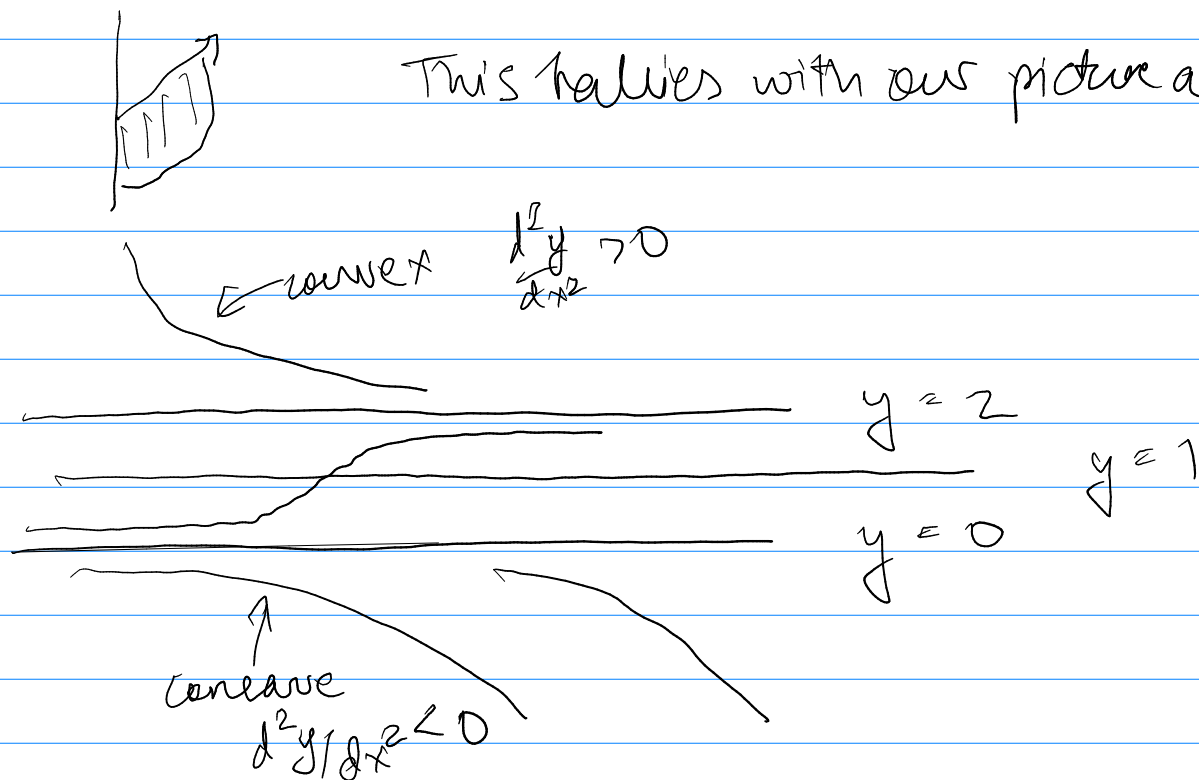 This tallies with our picture a
convex d²y/dx² > 0
y = 2
y = 1
y = 0
concave
d²y/dx² < 0